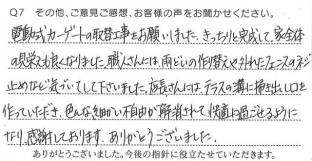 Q7 その他、ご意見ご感想、お客様の声をお聞かせください。
電動式カーゲートの取替工事をお願いしました。きっちりと完成して、家全体
の見栄えも良くなりました。職人さんには、雨どいの作り替えや外れたフェンスのネジ
止めなど気づいてして下さいました。店長さんには、テラスの溝に掃き出し口を
作っていただき、色んな細かい不自由が解消されて快適に過ごせるように
なり、感謝しております。ありがとうございました。
ありがとうございました。今後の指針に役立たせていただきます。